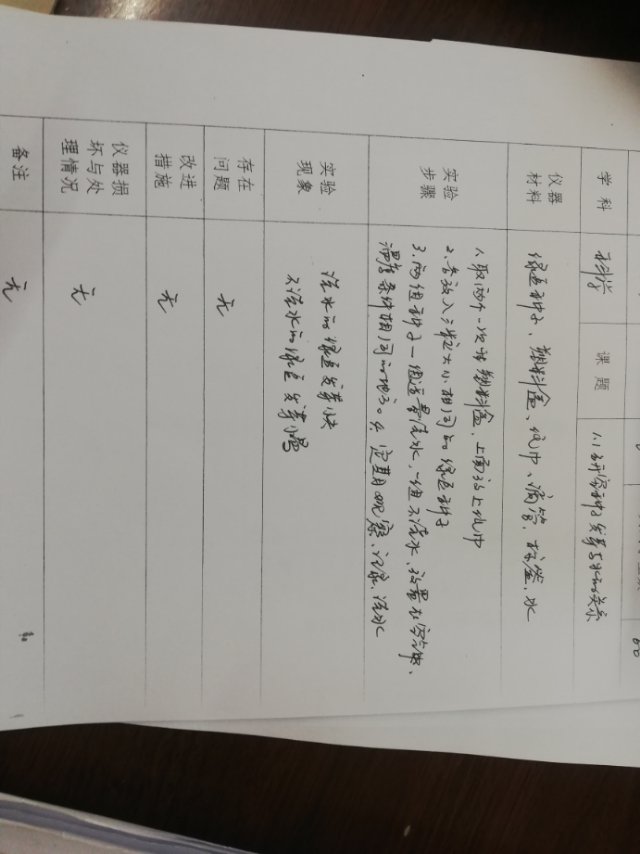 学科 科学 课题 1.1研究种子发芽与水的关系
仪器
材料
绿豆种子、塑料盒、纸巾、滴管、标签、水
实验
步骤
1.取两个一次性塑料盒,上面放上纸巾
2.各放入3粒大小相同的绿豆种子
3.两组种子一组适量浇水,一组不浇水,放置在空气中、
温度条件相同的地方。4.定期观察、记录、浇水
实验
现象
浇水的绿豆发芽快
不浇水的绿豆发芽慢
存在
问题
无
改进
措施
无
仪器损
坏与处
理情况
无
备注
无